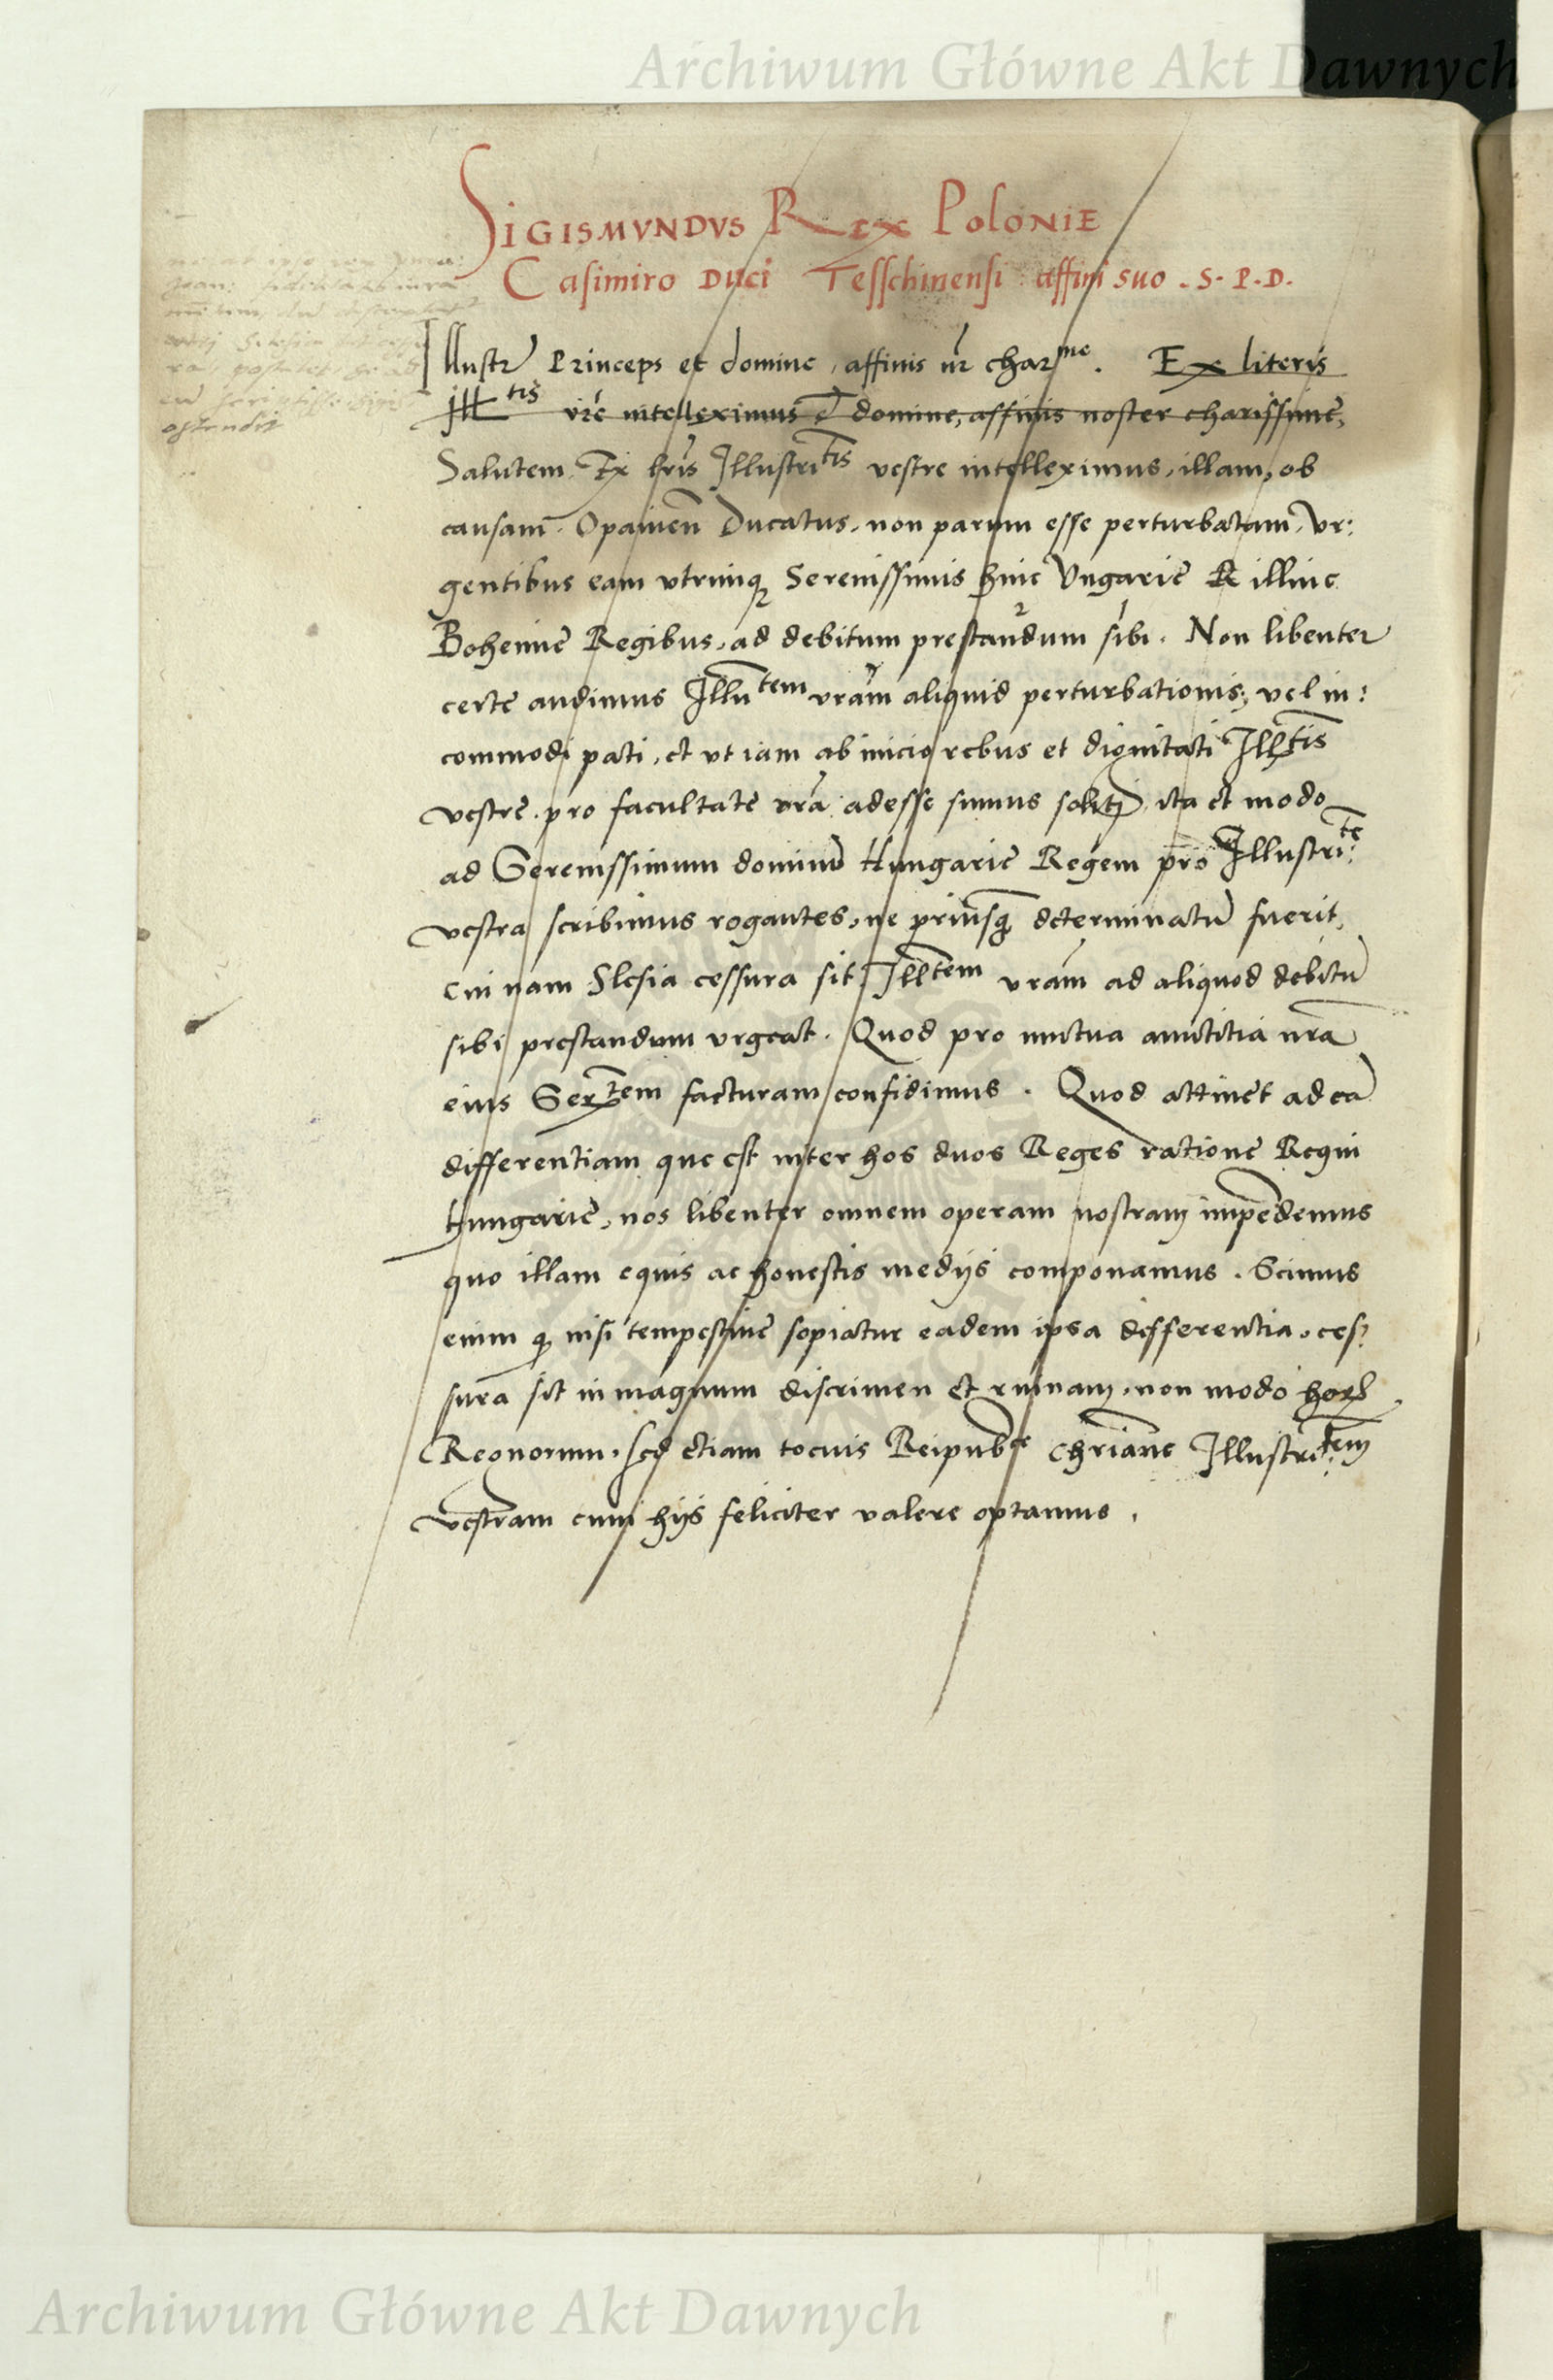 Archiwum Główne Akt Dawnych
Sigismvndvs Rex Polonie
Casimiro Duci Tesschinensi affini suo . S. P. D.
Illustr Princeps et domine, affinis nr charme. Ex literis
Illtis vre intelleximus et domine, affinis noster charissime,
Salutem. Ex lris Illustritis vestre intelleximus, illam, ob
causam Opavien Ducatus, non parum esse perturbatam, Vr:
gentibus eam vtrinq Serenissimis hinc Vngarie & illinc
Bohemie Regibus, ad debitum prestandum sibi. Non libenter
certe audimus Illutem vram aliquid perturbationis, vel in:
commodi pati, et vt iam ab inicio rebus et dignitati Illtis
vestre pro facultate nra adesse sumus soliti, ita et modo
ad Serenissimum dominu Hungarie Regem pro Illustrite
vestra scribimus rogantes, ne priusq determinatu fuerit,
cui nam Slesia cessura sit Illtem vram ad aliquod debitu
sibi prestandum vrgeat. Quod pro mutua amicitia nra
eius Sertem facturam confidimus. Quod attinet ad ea
differentiam que est inter hos duos Reges ratione Regni
Hungarie, nos libenter omnem operam nostram impedemus
quo illam equis ac honestis medijs componamus. Scimus
enim q nisi tempestive sopiatur eadem ipsa differentia, ces:
sura sit in magnum discrimen et ruinam, non modo hor
Regnorum, sed etiam tocius Reipubce Chriane Illustritem
vestram cum hijs feliciter valere optamus.
ostendit
Archiwum Główne Akt Dawnych